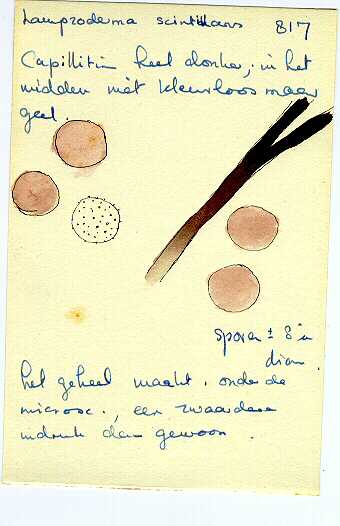 Lamproderma scintillans 817
Capillitium heel donker, in het
midden niet kleurloos maar
geel.
sporen ± 8 µ
diam.
het geheel maakt, onder de
microsc., een zwaardere
indruk dan gewoon.